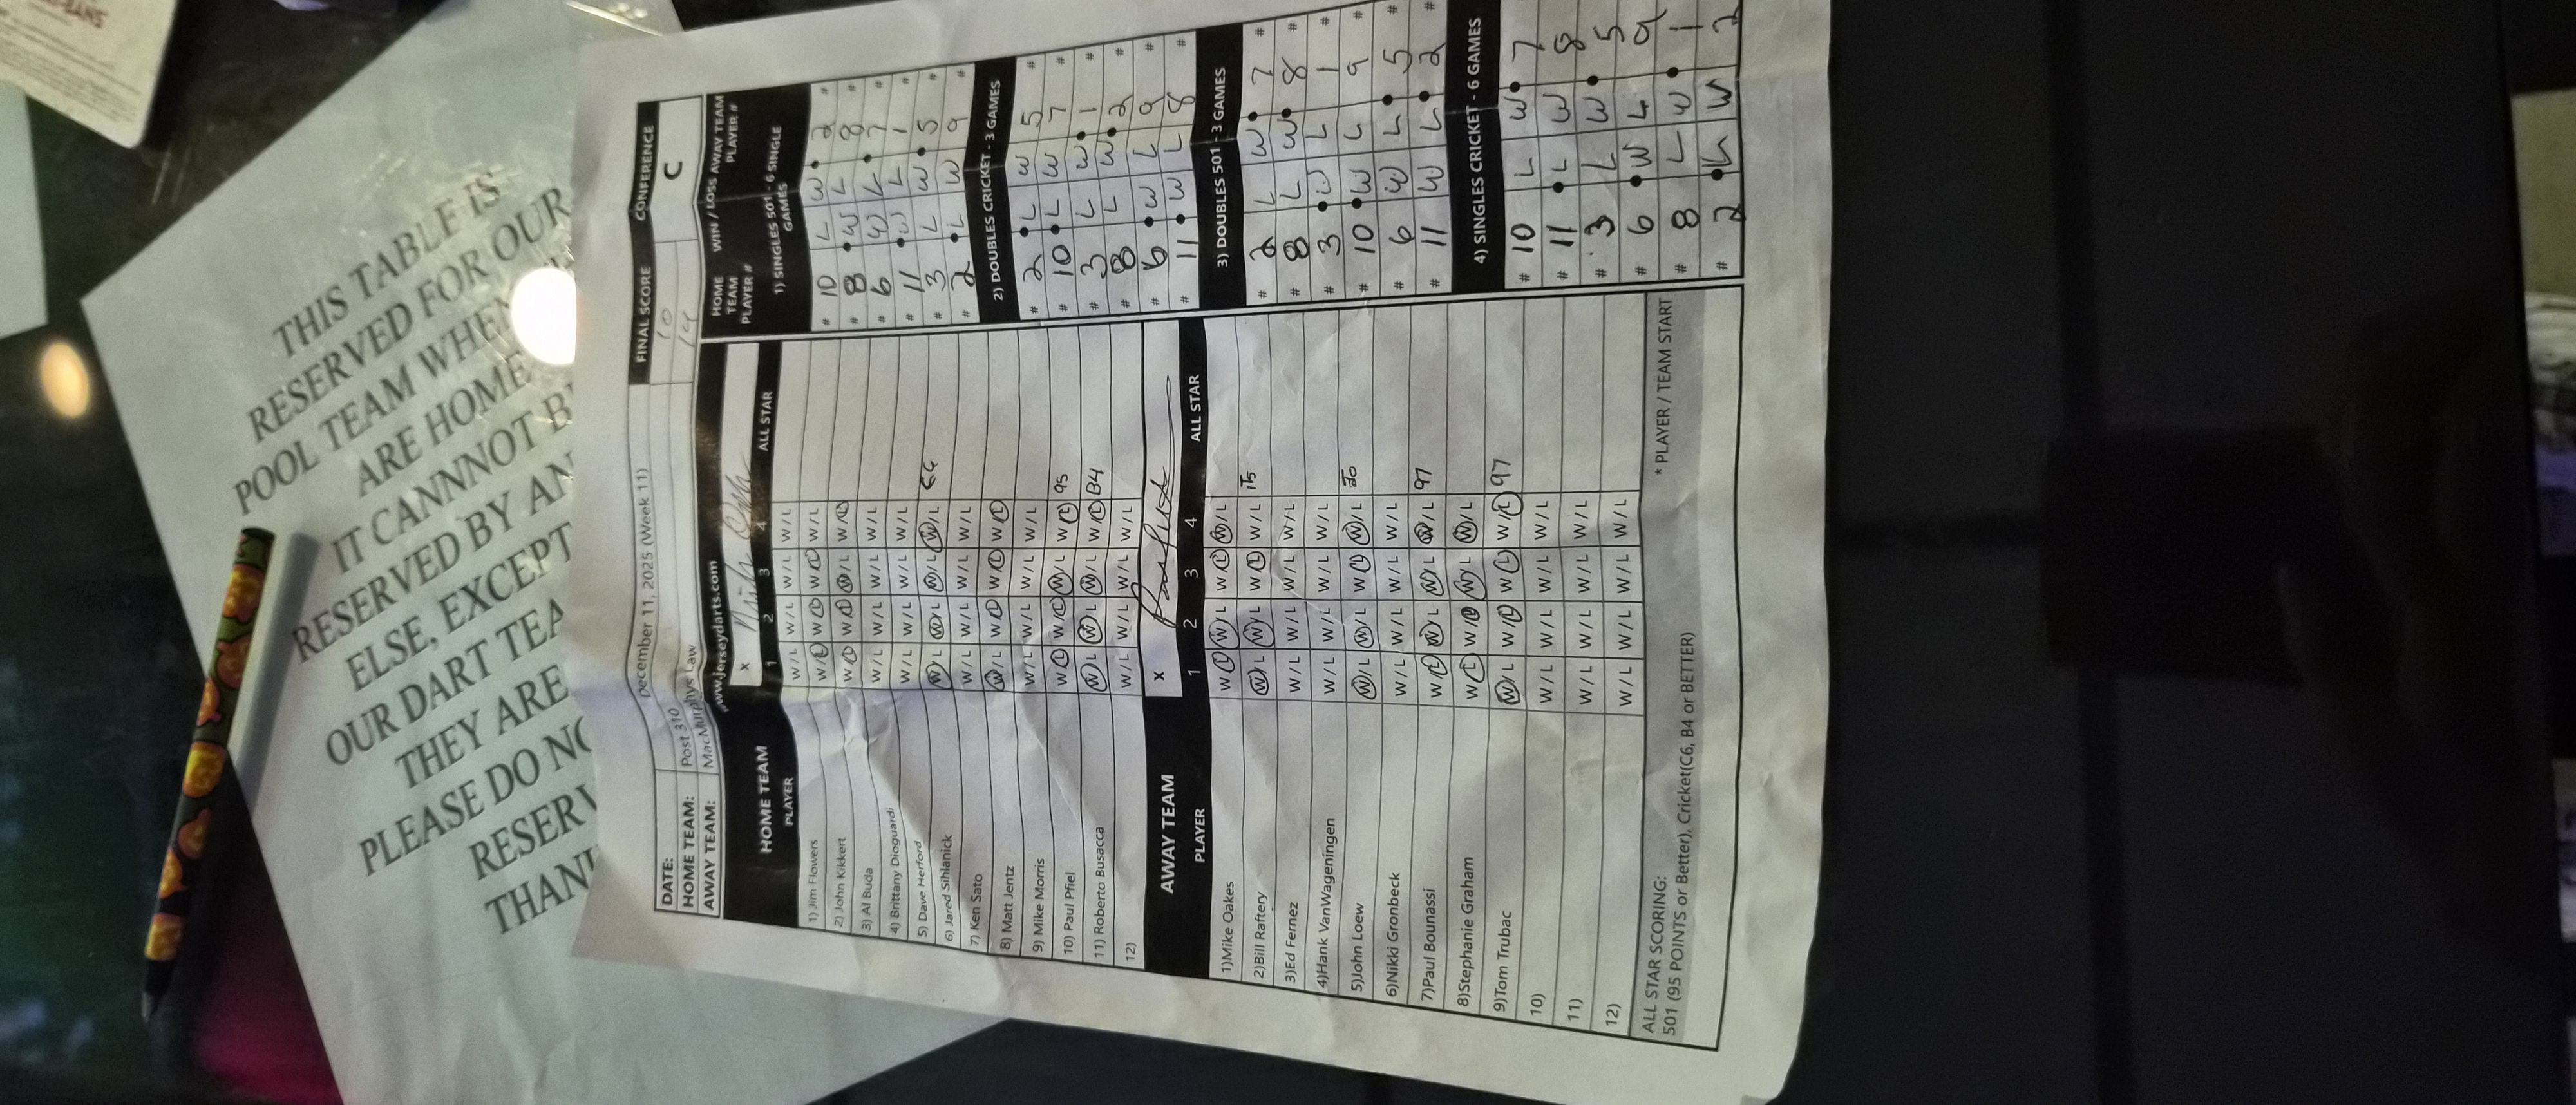 THIS TABLE IS
RESERVED FOR OUR
POOL TEAM WHEN
ARE HOME
IT CANNNOT B
RESERVED BY AN
ELSE, EXCEPT
OUR DART TEA
THEY ARE
PLEASE DO NO
RESERV
THAN
DATE: December 11, 2025 (Week 11) FINAL SCORE CONFERENCE
HOME TEAM: Post 310 10 C
AWAY TEAM: MacMurphys Law 14
www.jerseydarts.com
HOME TEAM X
PLAYER 1 2 3 4 ALL STAR
1) Jim Flowers W / L W / L W / L W / L
2) John Kikkert W / L W / L W / L W / L
3) Al Buda W / L W / L W / L W / L
4) Brittany Dioguardi W / L W / L W / L W / L
5) Dave Herford W / L W / L W / L W / L
6) Jared Sihlanick W / L W / L W / L W / L
7) Ken Sato W / L W / L W / L W / L
8) Matt Jentz W / L W / L W / L W / L
9) Mike Morris W / L W / L W / L W / L
10) Paul Pfiel W / L W / L W / L W / L 95
11) Roberto Busacca W / L W / L W / L W / L B4
12) W / L W / L W / L W / L
AWAY TEAM X
PLAYER 1 2 3 4 ALL STAR
1)Mike Oakes W / L W / L W / L W / L
2)Bill Raftery W / L W / L W / L W / L 115
3)Ed Fernez W / L W / L W / L W / L
4)Hank VanWageningen W / L W / L W / L W / L
5)John Loew W / L W / L W / L W / L
6)Nikki Gronbeck W / L W / L W / L W / L
7)Paul Bounassi W / L W / L W / L W / L 97
8)Stephanie Graham W / L W / L W / L W / L
9)Tom Trubac W / L W / L W / L W / L 97
10) W / L W / L W / L W / L
11) W / L W / L W / L W / L
12) W / L W / L W / L W / L
ALL STAR SCORING: * PLAYER / TEAM START
501 (95 POINTS or Better), Cricket(C6, B4 or BETTER)
HOME TEAM PLAYER # WIN / LOSS AWAY TEAM PLAYER #
1) SINGLES 501 - 6 SINGLE GAMES
# 10 L W 2 #
# 8 W L 8 #
# 6 W L 7 #
# 11 W L 1 #
# 3 L W 5 #
# 2 L W 9 #
2) DOUBLES CRICKET - 3 GAMES
# 2 L W 5 #
# 10 L W 7 #
# 3 L W 1 #
# 8 L W 2 #
# 6 W L 9 #
# 11 W L 8 #
3) DOUBLES 501 - 3 GAMES
# 2 L W 7 #
# 8 L W 8 #
# 3 W L 1 #
# 10 W L 9 #
# 6 W L 5 #
# 11 W L 2 #
4) SINGLES CRICKET - 6 GAMES
# 10 L W 7
# 11 L W 8
# 3 L W 5
# 6 W L 9
# 8 L W 1
# 2 L W 2